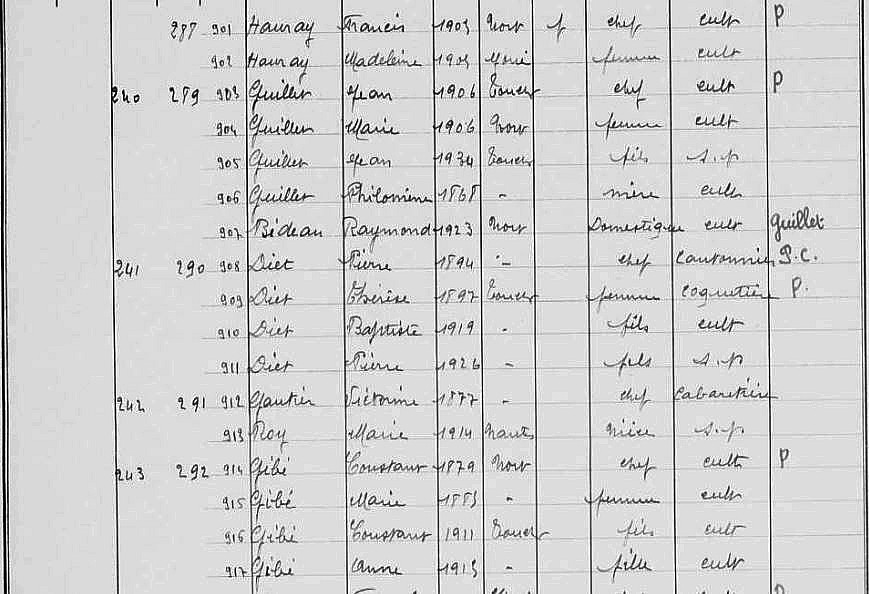 287 901 Hauray Francis 1903 Nort f chef cult P
902 Hauray Madeleine 1903 femme cult
240 289 903 Guillet Jean 1906 Touches chef cult P
904 Guillet Marie 1906 Nort femme cult
905 Guillet Jean 1934 Touches fils s.p
906 Guillet Philomène 1868 - mère cult
907 Bédeau Raymond 1923 Nort Domestique cult Guillet
241 290 908 Diet Pierre 1894 - chef Cantonnier P.C.
909 Diet Thérèse 1897 Touches femme Coquetière P.
910 Diet Baptiste 1919 - fils cult
911 Diet Pierre 1926 - fils s.p
242 291 912 Gautier Victorine 1877 - chef Cabaretière
913 Roy Marie 1914 Nantes Nièce s.p
243 292 914 Gébé Constant 1879 Nort chef cult P
915 Gébé Marie 1883 - femme cult
916 Gébé Constant 1911 Touches fils cult
917 Gébé Anne 1913 - fille cult